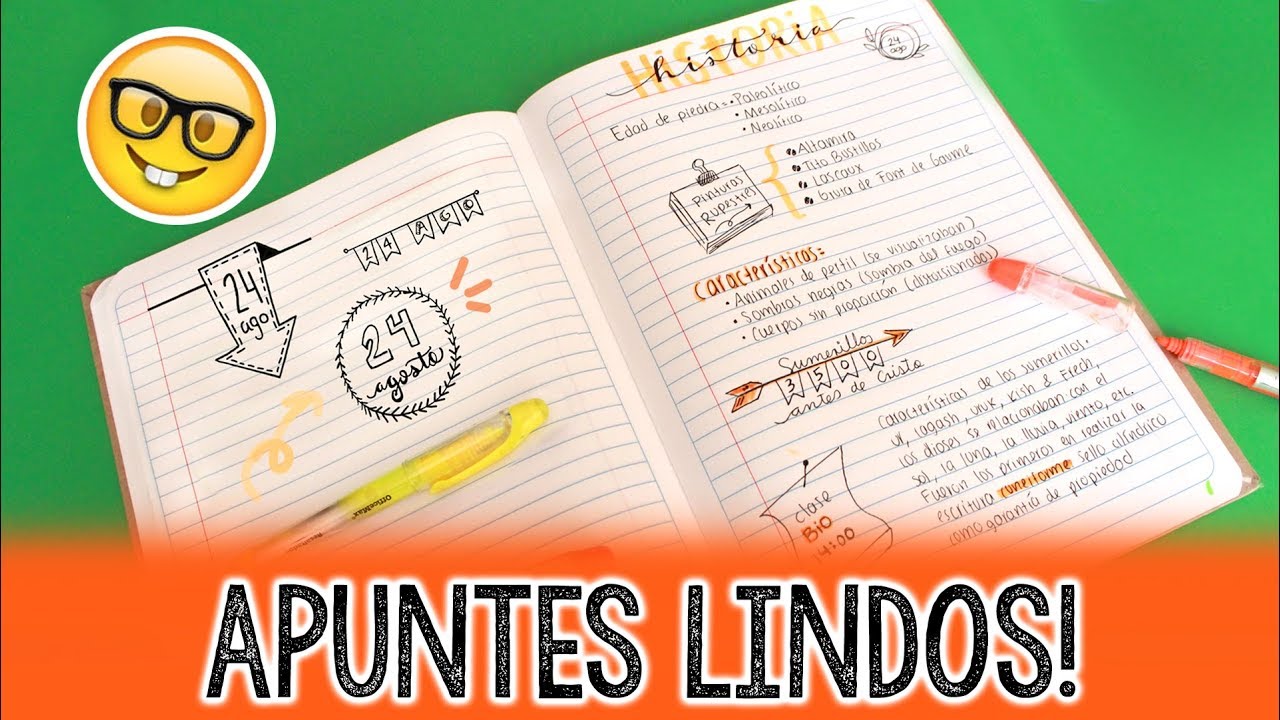 24
ago
24 AGO
24
agosto
OfficeMax
HISTORIA
historia
24
ago
Edad de piedra = • Paleolítico
• Mesolítico
• Neolítico
Pinturas
Rupestres
Altamira
Tito Bustillos
Lascaux
Gruta de Font de Gaume
Características:
• Animales de perfil (se visualizaban)
• Sombras negras (sombra del fuego)
• Cuerpos sin proporción (distorsionadas)
Sumerillos
3500
antes de Cristo
Características de los sumerillos.
ur, lagash, uruk, Kish & Frech,
los dioses se relacionaban con el
sol, la luna, la lluvia, viento, etc.
Fueron los primeros en realizar la
escritura cuneiforme sello cilíndrico
como garantía de propiedad
clase
BIO
14:00
APUNTES LINDOS!